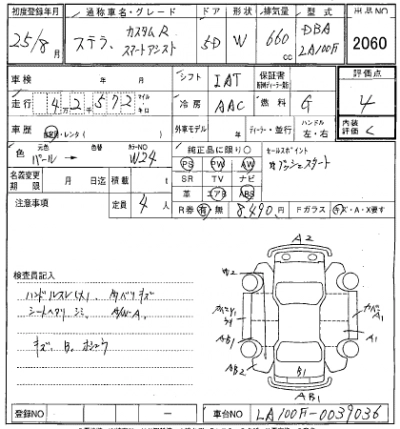 初度登録年月 通称車名・グレード ドア 形状 排気量 型式 出品NO
25/8月 ステラ、 カスタムR スマートアシスト 5D W 660cc DBA LA100F 2060
車検 年 月 シフト IAT 保証書 評価点
走行 42千572 マイル キロ 冷房 AAC 燃料 G 4
車歴 レンタ( ) 外車モデル 年 ディーラー・並行 ハンドル 左・右 内装評価 C
色 元色 パール → 色替 カラーNO W24 純正品に限り○ セールスポイント
PS PW AW プッシュスタート
名義変更期限 月 日迄 積載 t SR TV ナビ
革 エアB ABS
注意事項 定員 4人 R券 有 無 8,490円 Fガラス X・A・X要す
A2
検査員記入
ハンドルスレ(大)、
シートヘタリ シミ、 A/W-A、
キズ、B、
A1
AB1
A1
AB2
B1
AB1
登録NO ー 車台NO LA100F-0039036